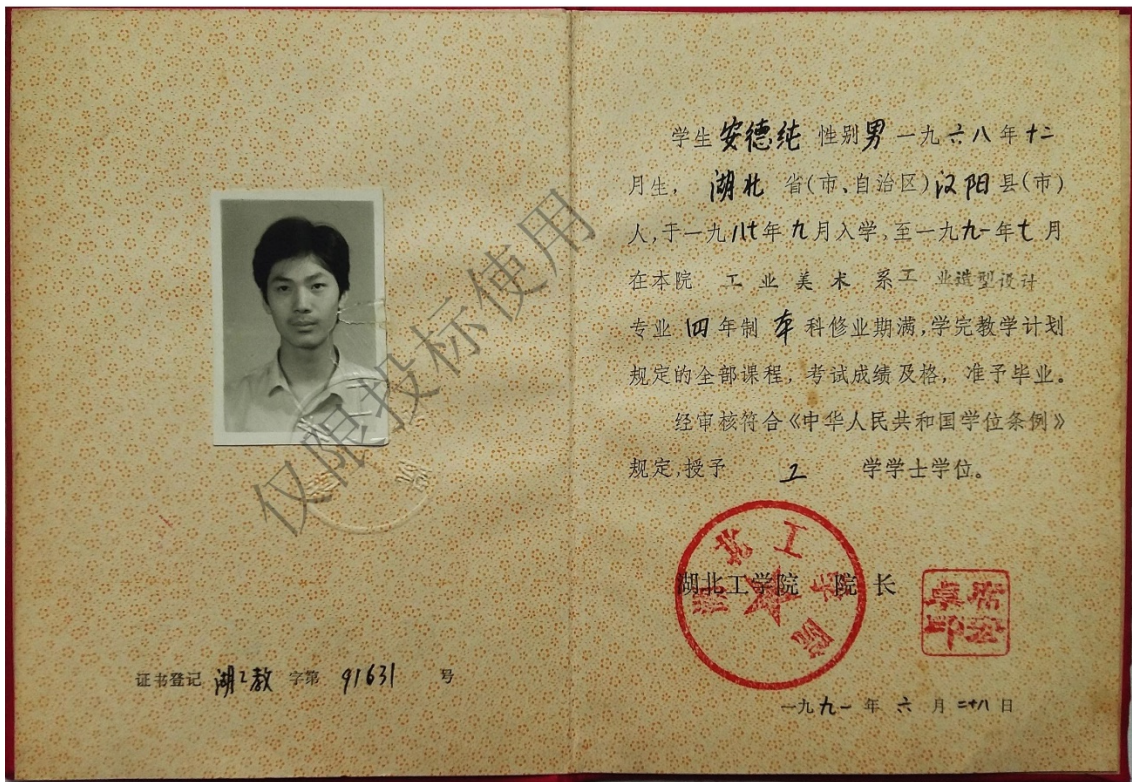 仅限投标使用
证书登记 湖工教 字第 91631 号
学生安德纯 性别男 一九六八年十二
月生, 湖北 省(市、自治区)汉阳县(市)
人,于一九八七年九月入学,至一九九一年七月
在本院 工业美术 系工业造型设计
专业 四年制 本科修业期满,学完教学计划
规定的全部课程, 考试成绩及格, 准予毕业。
经审核符合《中华人民共和国学位条例》
规定,授予 工 学学士学位。
湖北工学院
湖北工学院 院长
一九九一年六月二十八日